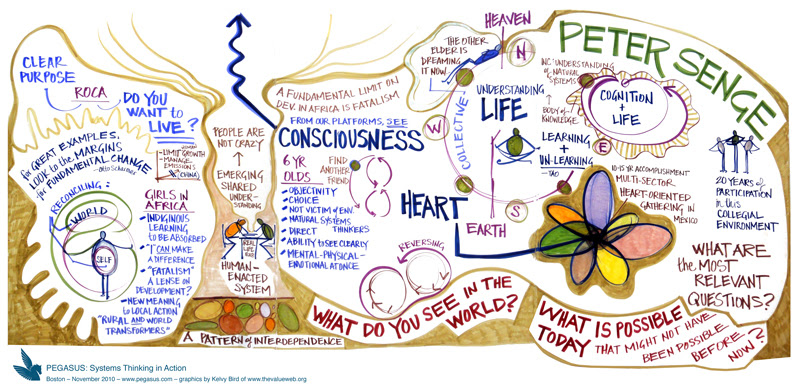 CLEAR
PURPOSE
ROCA
DO YOU
WANT to
LIVE?
for GREAT EXAMPLES,
LOOK to the MARGINS
for FUNDAMENTAL CHANGE
- Otto Scharmer
-LIMIT GROWTH
-MANAGE
EMISSIONS
CHINA
RECONCILING:
WORLD
SELF
GIRLS IN
AFRICA
- INDIGINOUS
LEARNING
TO BE ABSORBED
- "I CAN MAKE
A DIFFERENCE
- "FATALISM"
A LENSE ON
DEVELOPMENT?
- NEW MEANING
to LOCAL ACTION
"RURAL AND WORLD
TRANSFORMERS"
PEOPLE ARE
NOT CRAZY
EMERGING
SHARED
UNDER-
STANDING
REAL
LIFE
HUMAN-
ENACTED
SYSTEM
A PATTERN of INTERDEPENDENCE
A FUNDAMENTAL LIMIT ON
DEV. IN AFRICA IS FATALISM
FROM OUR PLATFORMS, SEE
CONSCIOUSNESS
6 YR
OLDS
- OBJECTIVITY
- CHOICE
- NOT VICTIM of ENV.
- NATURAL SYSTEMS
THINKERS
- DIRECT
- ABILITY to SEE CLEARLY
- MENTAL-PHYSICAL-
EMOTIONAL ATONCE
FIND
ANOTHER
FRIEND
REVERSING
WHAT DO YOU SEE IN THE
WORLD?
THE OTHER
ELDER IS
DREAMING
IT NOW
HEAVEN
N
W
E
S
EARTH
COLLECTIVE
UNDERSTANDING
LIFE
INC. UNDERSTANDING
of NATURAL
SYSTEMS
BODY of
KNOWLEDGE
LEARNING
+
UN-LEARNING
- TAO
HEART
PETER SENGE
COGNITION
+
LIFE
10-15 YR ACCOMPLISHMENT
MULTI-SECTOR,
HEART-ORIENTED
GATHERING in
MEXICO
20 YEARS of
PARTICIPATION
in this
COLLEGIAL
ENVIRONMENT
WHAT ARE
the MOST
RELEVANT
QUESTIONS?
WHAT IS POSSIBLE
TODAY THAT MIGHT NOT HAVE
BEEN POSSIBLE
BEFORE NOW?
PEGASUS: Systems Thinking in Action
Boston – November 2010 – www.pegasus.com – graphics by Kelvy Bird of www.thevalueweb.org